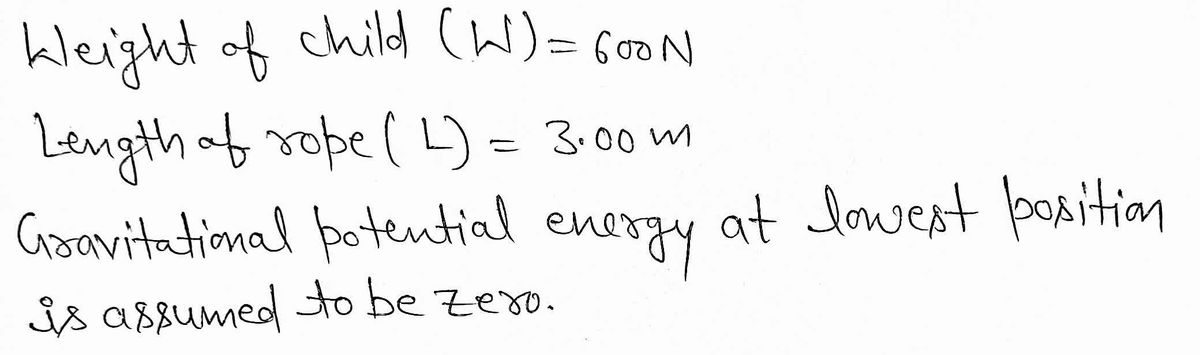 Weight of child (W) = 600N
Length of rope (L) = 3.00 m
Gravitational potential energy at lowest position
is assumed to be zero.